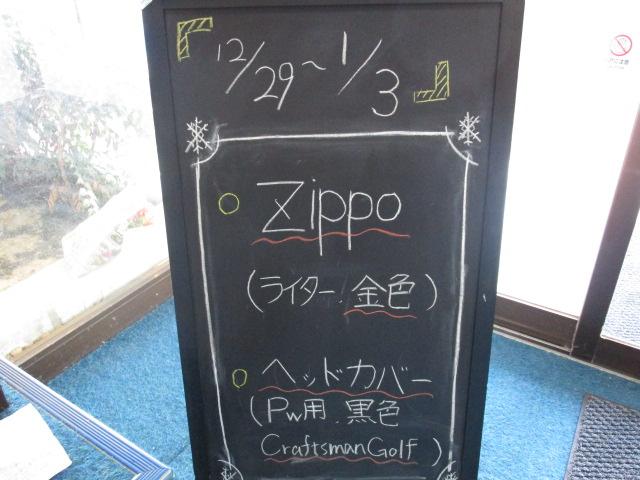 『12/29～1/3』
○ Zippo
(ライター.金色)
○ ヘッドカバー
(Pw用.黒色
CraftsmanGolf)